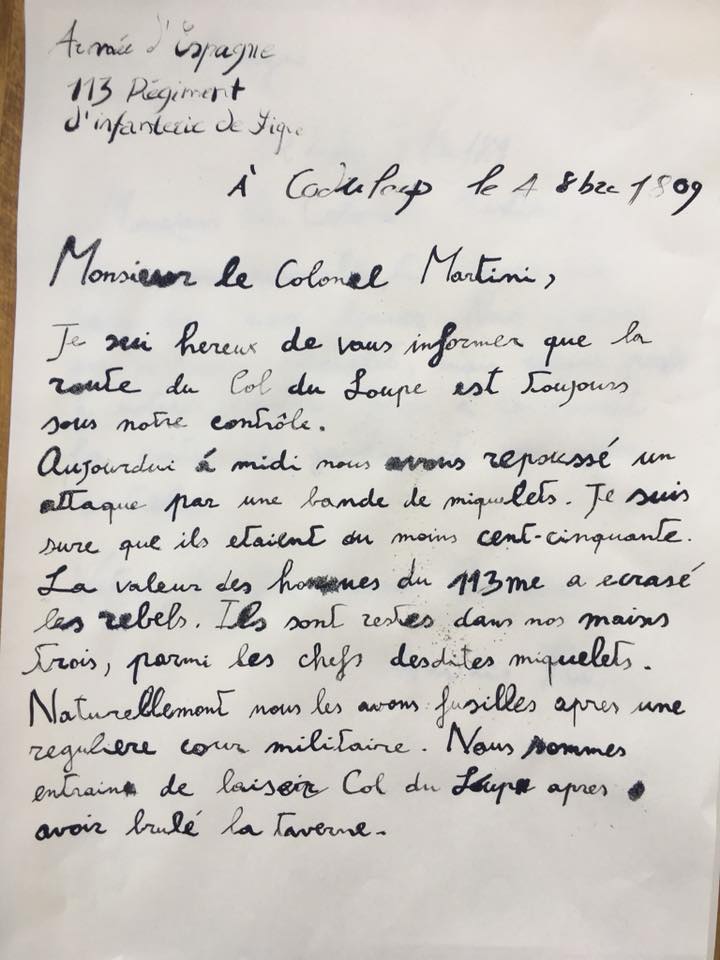 Armée d'Espagne
113 Régiment
d'infanterie de Ligne
À le 4 8bre 1809
Monsieur le Colonel Martini,
Je sui hereux de vous informer que la
route du Col du Loupe est toujours
sous notre contrôle.
Aujourdui á midi nous avons repoussé un
attaque par une bande de miquelets. Je suis
sure que ils etaient au moins cent-cinquante.
La valeur des hommes du 113me a ecrasé
les rebels. Ils sont restes dans nos mains
trois, parmi les chefs desdites miquelets.
Naturellemont nous les avons fusilles apres une
reguliere cour militaire. Nous sommes
entrain de laiseir Col du Loupe apres
avoir brulé la taverne.